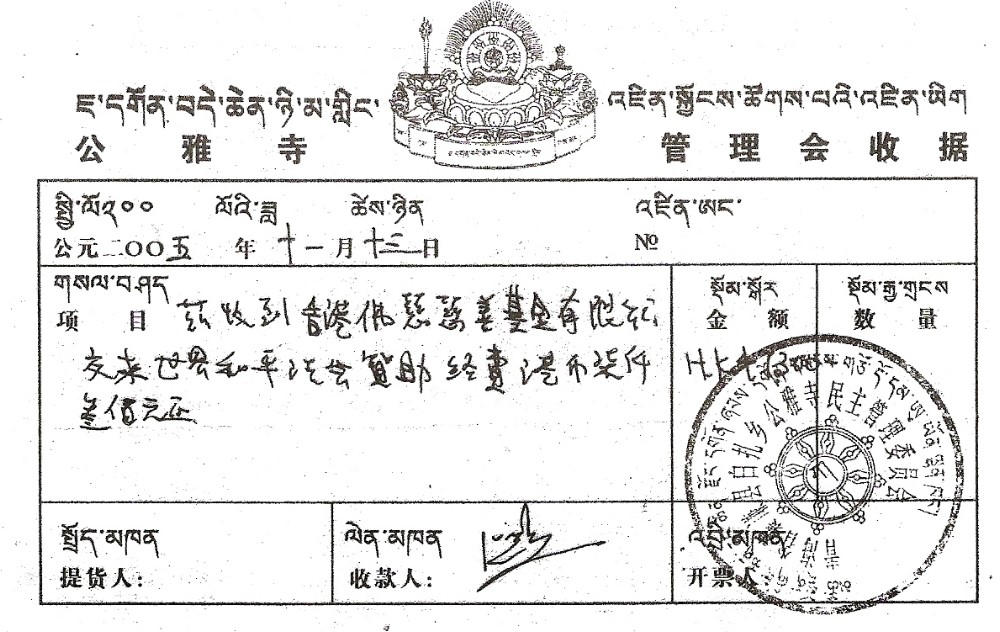 ཇ་དགོན་བདེ་ཆེན་ཉི་མ་གླིང་ འཛིན་སྐྱོངས་ཚོགས་པའི་འཛིན་ཡིག
公雅寺 管理会收据
སྤྱི་ལོ༢༠༠ ལོའི་ཟླ ཚེས་ཉིན འཛིན་ཨང་
公元二〇〇五年十一月十三日 №
གསལ་བ་ཤད སྡོམ་སྐོར སྡོམ་རྒྱ་གྲངས
项目 兹收到香港佛慈慈善基金有限公司 金额 数量
交来世界和平法会资助经费港币柒仟
叁佰元正
སྤྲོད་མཁན ལེན་མཁན འབྲི་མཁན
提货人: 收款人: 开票人
白扎乡公雅寺民主管理委员会